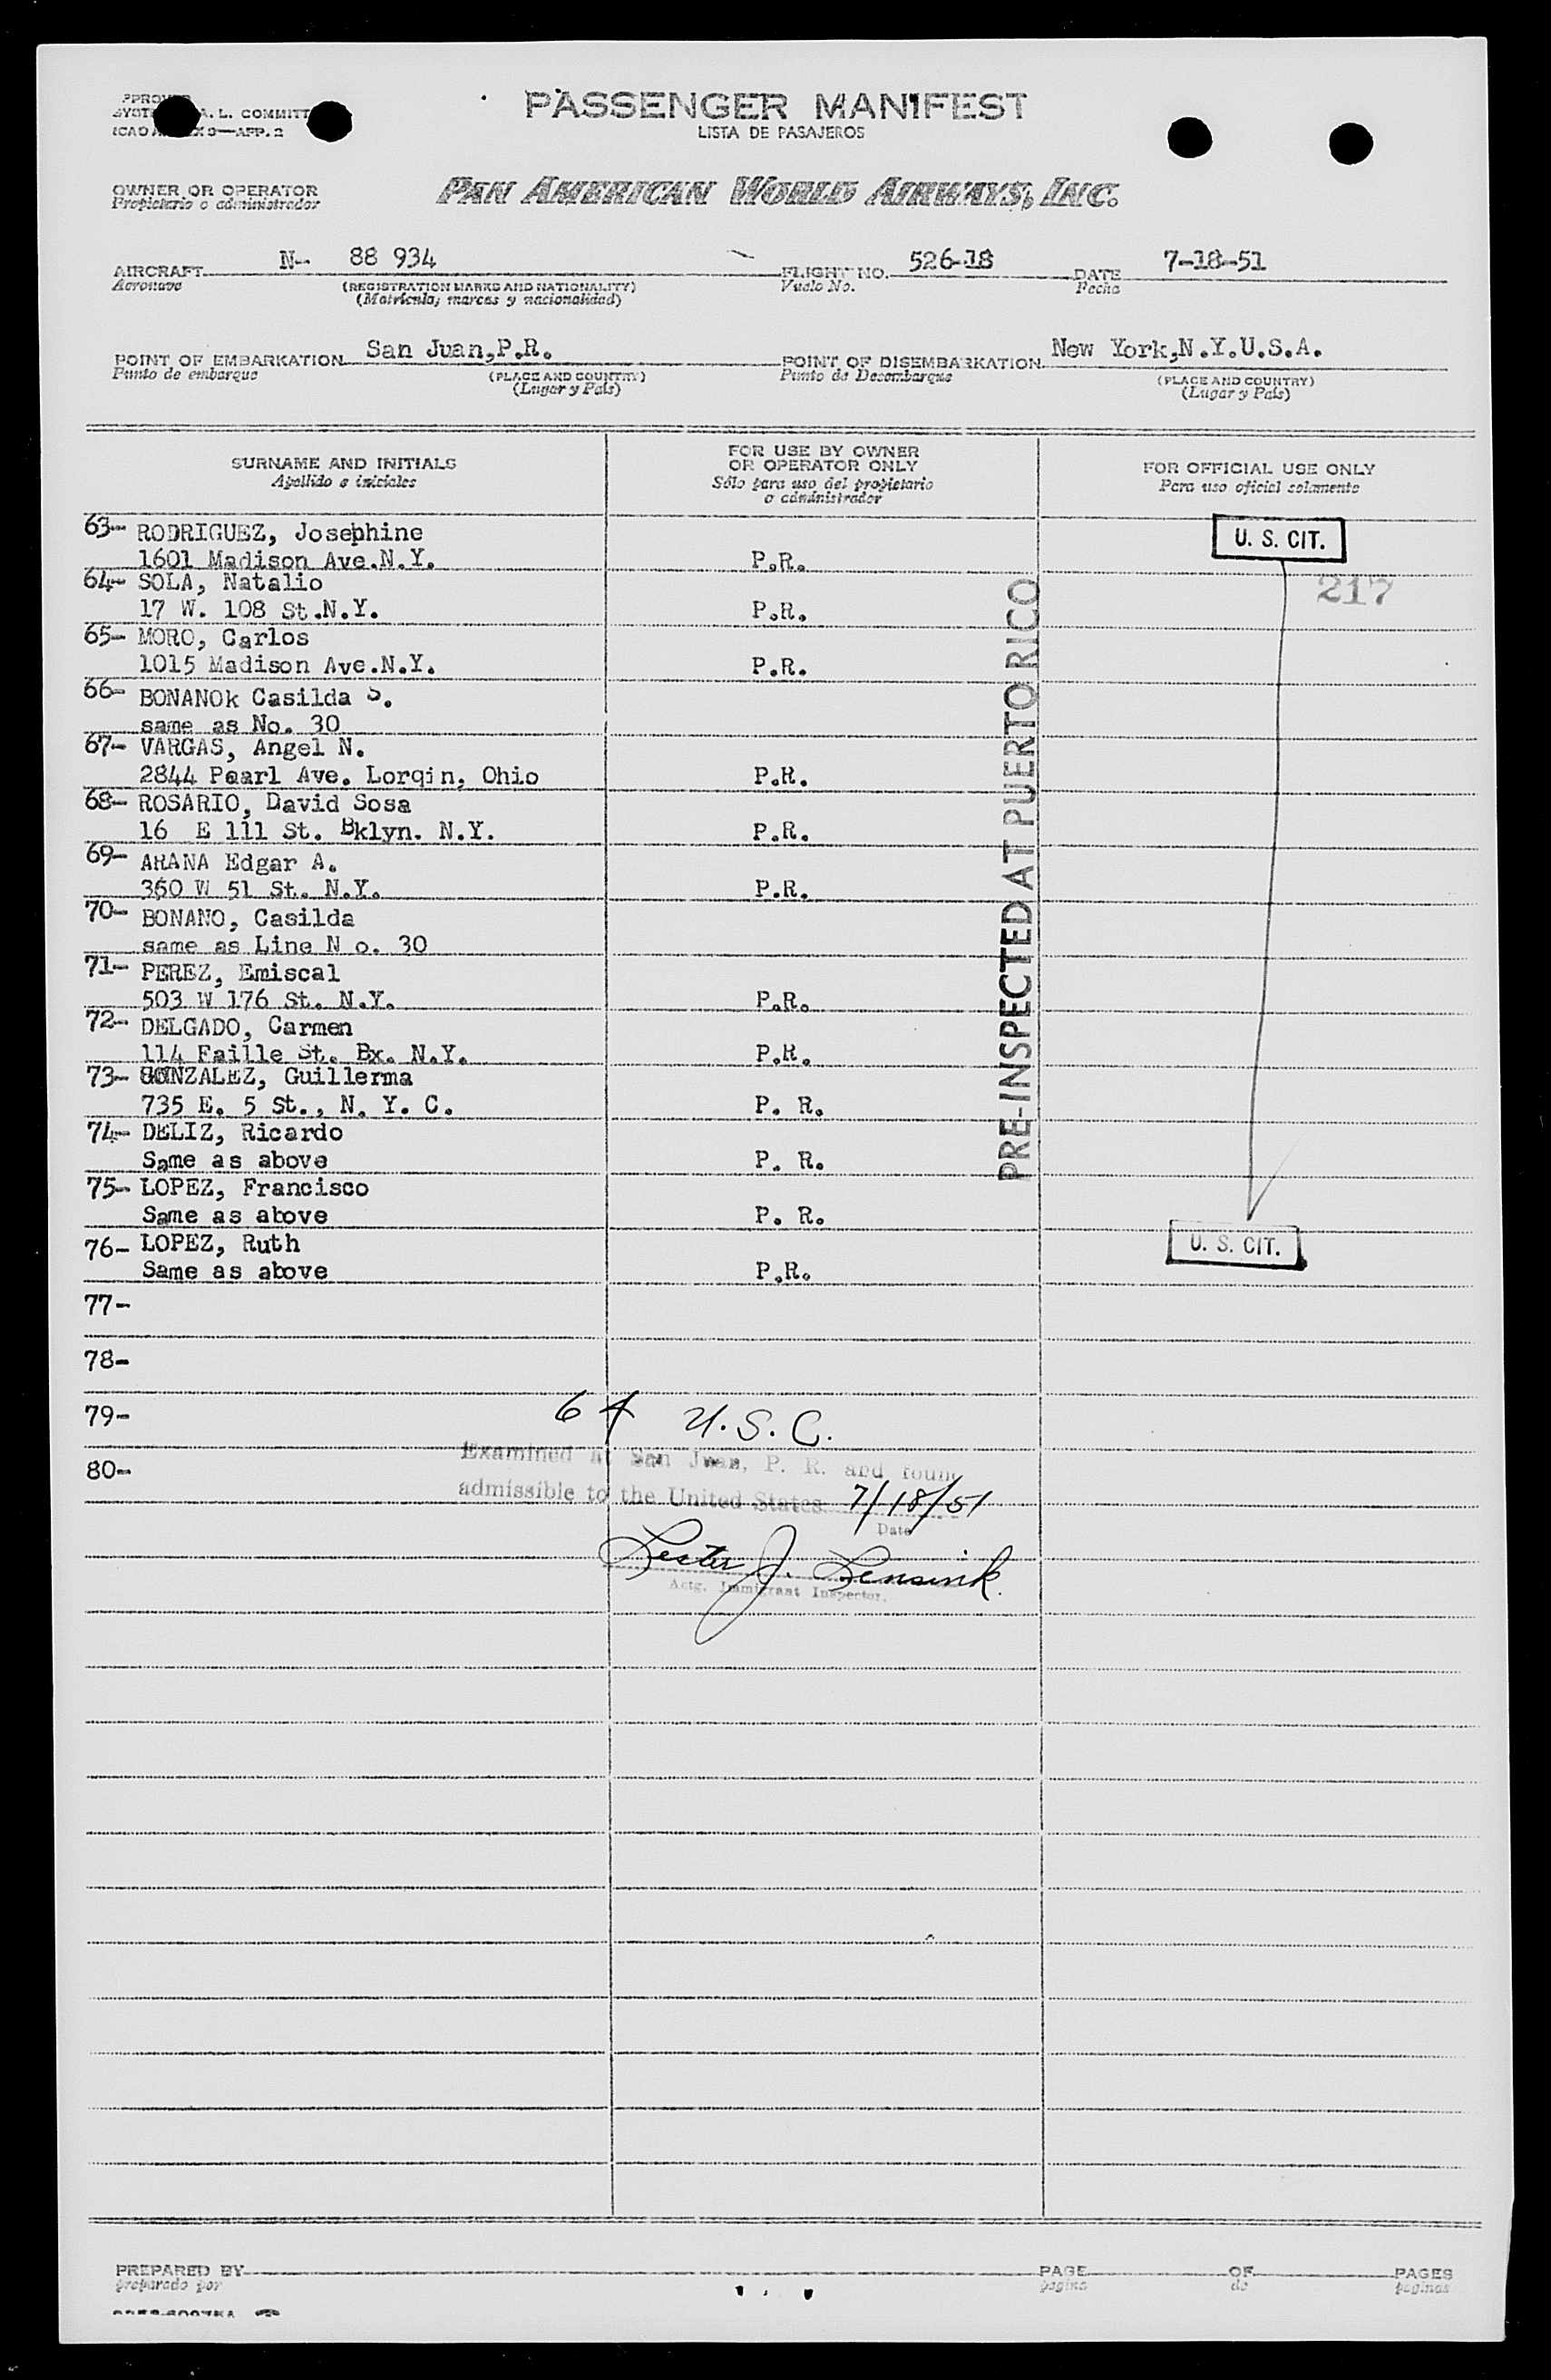 PASSENGER MANIFEST
LISTA DE PASAJEROS
A. L. COMMITT
3—APP. 2
OWNER OR OPERATOR
Propietario o administrador
PAN AMERICAN WORLD AIRWAYS, INC.
AIRCRAFT N- 88 934 FLIGHT NO. 526-18 DATE 7-18-51
Aeronave (REGISTRATION MARKS AND NATIONALITY) Vuelo No. Fecha
(Matrícula, marcas y nacionalidad)
POINT OF EMBARKATION San Juan,P.R. POINT OF DISEMBARKATION New York,N.Y.U.S.A.
Punto de embarque (PLACE AND COUNTRY) Punto de Desembarque (PLACE AND COUNTRY)
(Lugar y País) (Lugar y País)
SURNAME AND INITIALS FOR USE BY OWNER OR OPERATOR ONLY FOR OFFICIAL USE ONLY
Apellido e iniciales Sólo para uso del propietario o administrador Para uso oficial solamente
63- RODRIGUEZ, Josephine U. S. CIT.
1601 Madison Ave.N.Y. P.R.
64- SOLA, Natalio 217
17 W. 108 St.N.Y. P.R.
65- MORO, Carlos
1015 Madison Ave.N.Y. P.R.
66- BONANOk Casilda S.
same as No. 30
67- VARGAS, Angel N.
2844 Pearl Ave. Lorqin, Ohio P.R.
68- ROSARIO, David Sosa
16 E 111 St. Bklyn. N.Y. P.R.
69- ARANA Edgar A.
360 W 51 St. N.Y. P.R.
70- BONANO, Casilda
same as Line N o. 30
71- PEREZ, Emiscal
503 W 176 St. N.Y. P.R.
72- DELGADO, Carmen
114 Faille St. Bx. N.Y. P.R.
73- GONZALEZ, Guillerma
735 E. 5 St., N. Y. C. P. R.
74- DELIZ, Ricardo
Same as above P. R.
75- LOPEZ, Francisco
Same as above P. R.
76- LOPEZ, Ruth U. S. CIT.
Same as above P.R.
PRE-INSPECTED AT PUERTO RICO
77-
78-
79- 64 U.S.C.
Examined at San Juan, P. R. and foun
80-
admissible to the United States 7/18/51
Date
Lester J. Lensink
Actg. Immigrant Inspector.
PREPARED BY PAGE OF PAGES
preparado por pagina de paginas